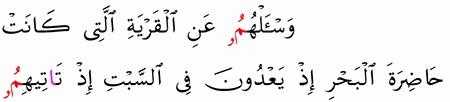 وَسْـَٔلْهُمُۥ عَنِ ٱلْقَرْيَةِ ٱلَّتِى كَانَتْ
حَاضِرَةَ ٱلْبَحْرِ إِذْ يَعْدُونَ فِى ٱلسَّبْتِ إِذْ تَاتِيهِمُۥ